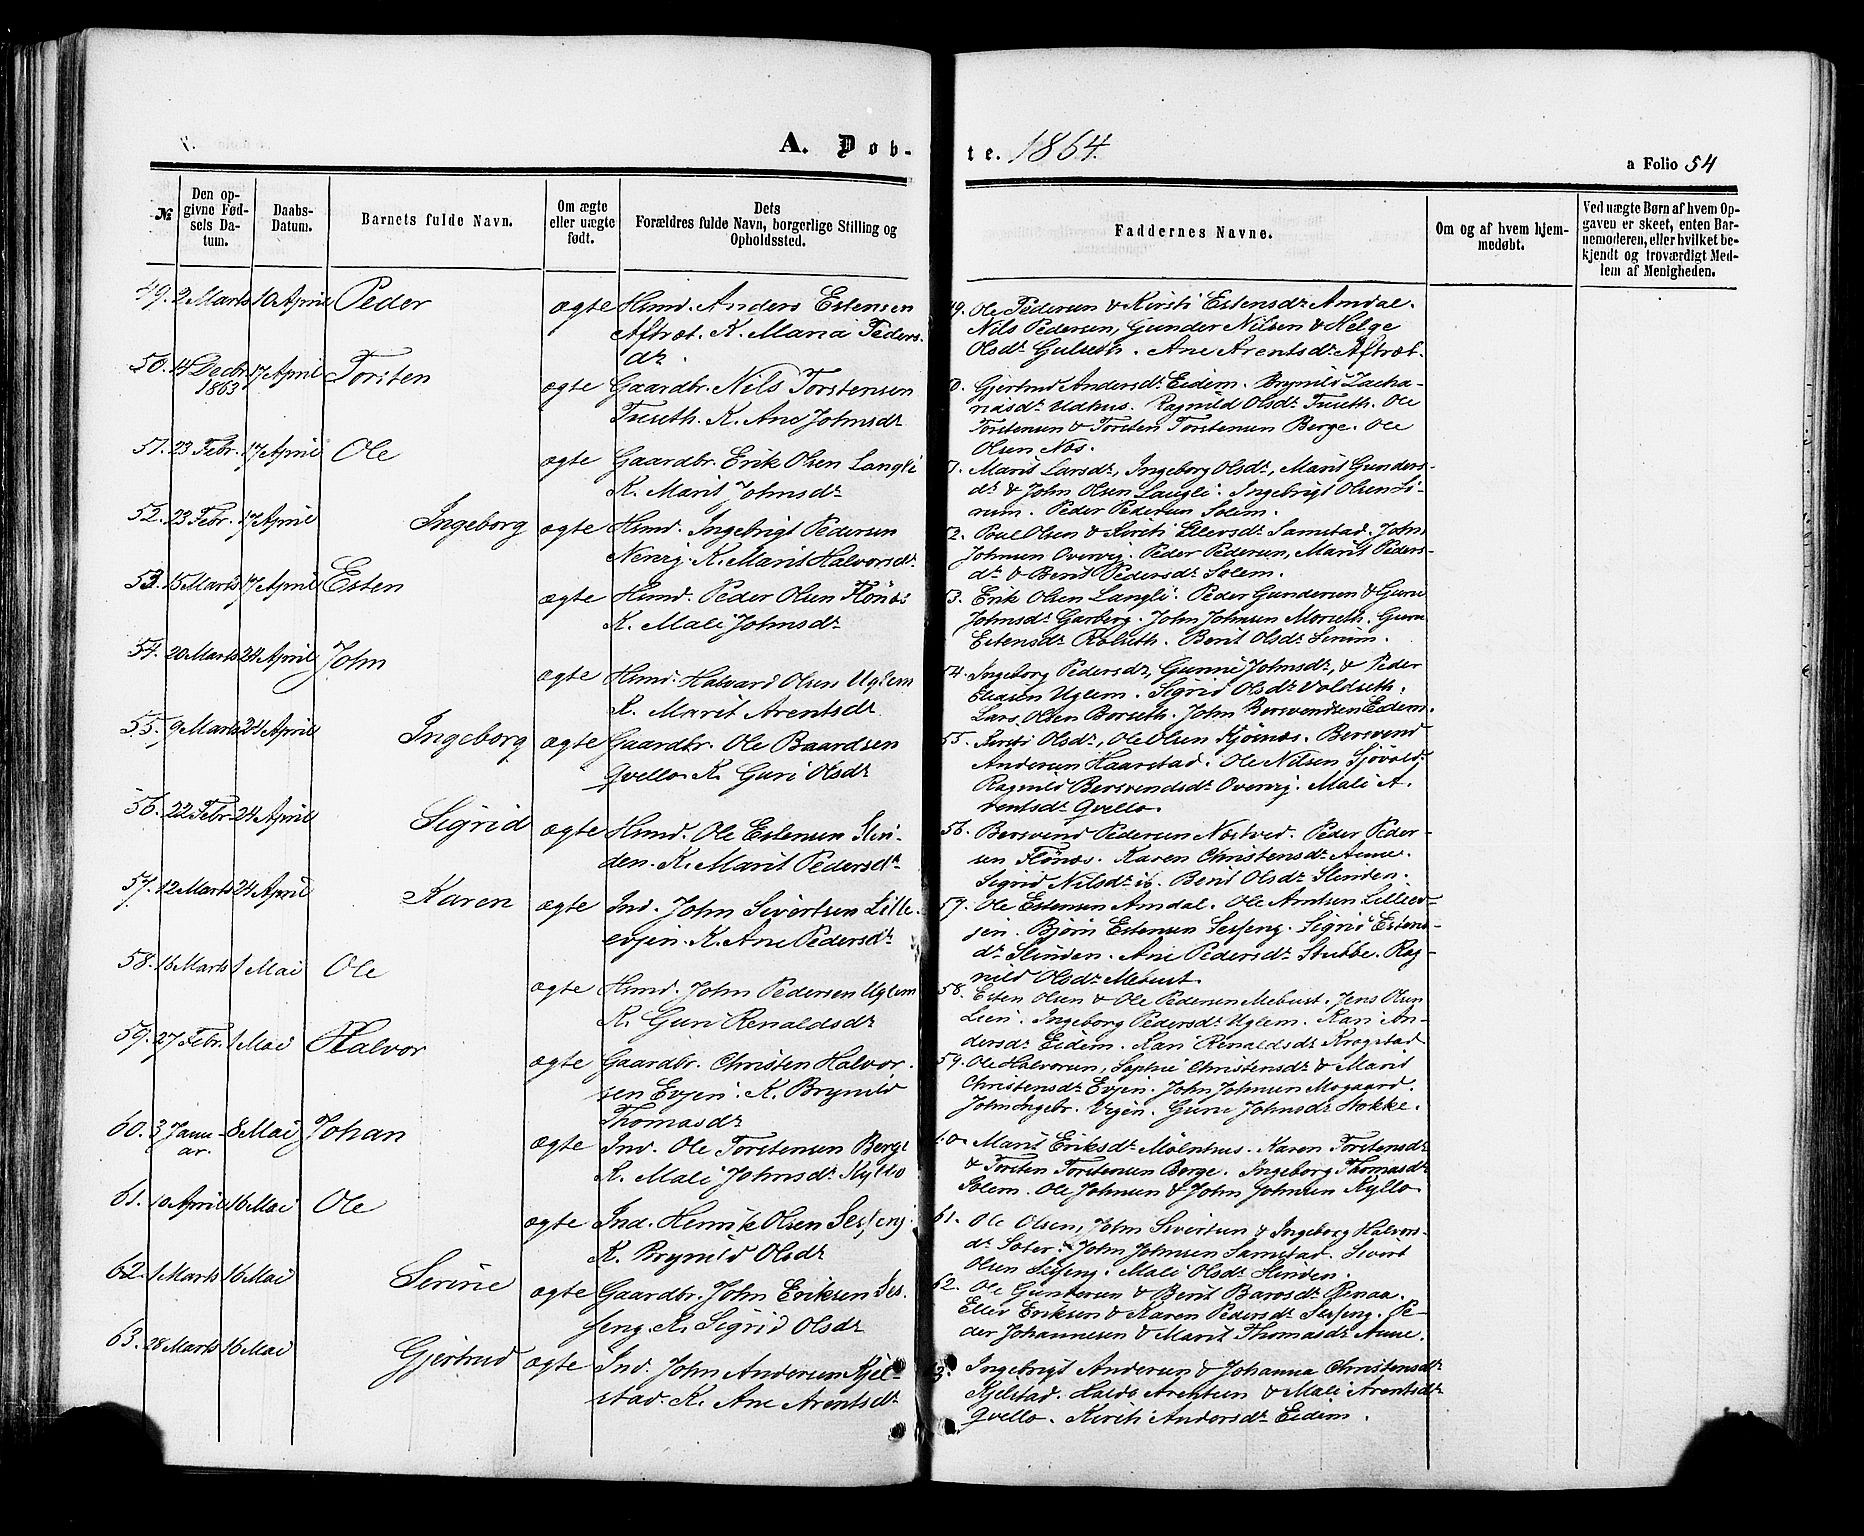 A. Døb-
te. 1864.
a Folio 54
№
Den op-
givne Fød-
sels Da-
tum.
Daabs-
Datum.
Barnets fulde Navn.
Om ægte
eller uægte
født.
Dets
Forældres fulde Navn, borgerlige Stilling og
Opholdssted.
Faddernes Navne.
Om og af hvem hjem-
medøbt.
Ved uægte Børn af hvem Op-
gaven er skeet, enten Bar-
nemoderen, eller hvilket be-
kjendt og troværdigt Med-
lem af Menigheden.
49. 2 Marts 10 April Peder ægte Hsmd. Anders Estensen
Aftræt. K. Maria Peders
dr.
49. Ole Pedersen & Kirsti Estensdr Amdal.
Nils Pedersen, Gunder Nilsen & Helge
Olsdr Gulseth. Ane Arentsdr Aftræt.
50. 14 Decbr 1863 17 April Torsten ægte Gaardbr. Nils Torstensen
Tuseth. K. Ane Johnsdr
0. Gjertrud Andersdr Eidem. Brynild Zacha-
riasdr Udhus. Ragnild Olsdr Tuseth. Ole
Torstensen & Torsten Torstensen Berge. Ole
Olsen Næs.
51. 23 Febr. 17 April Ole ægte Gaardbr. Erik Olsen Langli
K. Marit Johnsdr
1. Marit Larsdr, Ingeborg Olsdr, Marit Gunders-
dr & John Olsen Langli. Ingebrigt Olsen Li-
rum. Peder Pedersen Solem.
52. 23 Febr. 17 April Ingeborg ægte Hsmd. Ingebrigt Pedersen
Nervig. K. Marit Halvorsdr.
2. Poul Olsen & Kirsti Ellersdr Samstad. John
Johnsen Overvig. Peder Pedersen, Marit Peders-
dr & Berit Pedersdr Solem.
53. 15 Marts 17 April Esten ægte Hsmd. Peder Olsen Flönæs
K. Mali Johnsdr
3. Erik Olsen Langli. Peder Gundersen & Guru
Johnsdr Garberg. John Johnsen Morseth. Guru
Estensdr Rolseth. Berit Olsdr Lirum.
54. 20 Marts 24 April John ægte Hsmd. Halvard Olsen Uglem
K. Marit Arentsdr
54. Ingeborg Pedersdr, Gunni Johnsdr, & Peder
Eliasen Uglem. Sigrid Olsdr Voldseth.
Lars Olsen Borseth. John Bersvendsen Eidem.
55. 9 Marts 24 April Ingeborg ægte Gaardbr. Ole Baardsen
Qvello. K. Guri Olsdr
55. Kirsti Olsdr, Ole Olsen Kjösnæs. Bersvend
Andersen Haarstad. Ole Nilsen Sjövold.
Ragnild Bersvendsdr Overvig. Mali A-
rentsdr Qvello.
56. 22 Febr 24 April Sigrid ægte Hsmd. Ole Estensen Slin-
den. K. Marit Pedersdr
56. Bersvend Pedersen Næstved. Peder Peder-
sen Flönæs. Karen Christensdr Aune.
Sigrid Nilsdr ib. Berit Olsdr Slinden.
57. 12 Marts 24 April Karen ægte Ind. John Sivertsen Lille-
evjen. K. Ane Pedersdr
57. Ole Estensen Amdal. Ole Arntsen Lilleev-
jen. Björn Estensen Sesseng. Sigrid Estens-
dr Slinden. Ane Pedersdr Stubbe. Rag-
nild Olsdr Mebust.
58. 16 Marts 1 Mai Ole ægte Hsmd. John Pedersen Uglem
K. Guri Renaldsdr
58. Esten Olsen & Ole Pedersen Mebust. Jens Olsen
Lien. Ingeborg Pedersdr Uglem. Kari An-
dersdr Eidem. Kari Renaldsdr Krogstad
59. 27 Febr. 1 Mai Halvor ægte Gaardbr. Christen Halvor-
sen Evjen. K. Brynild
Thomasdr
59. Ole Halvorsen, Sophie Christensdr & Marit
Christensdr Evjen. John Johnsen Mogaard.
John Ingebr. Vigen. Guru Johnsdr Stokke.
60. 3 Janu-
ar. 8 Mai Johan ægte Ind. Ole Torstensen Berge
K. Mali Johnsdr Kyllo
60. Marit Eriksdr Mölnhus. Karen Torstensdr
& Torsten Torstensen Berge. Ingeborg Thomasdr
Solem. Ole Johnsen & John Johnsen Kyllo.
61. 10 April 16 Mai Ole ægte Ind. Henrik Olsen Sesseng.
K. Brynild Olsdr
61. Ole Olsen, John Sivertsen & Ingeborg Halvors-
dr Sater. John Johnsen Samstad. Sivert
Olsen Sesseng. Mali Olsdr Slinden.
62. 1 Marts 16 Mai Serine ægte Gaardbr. John Eriksen Ses-
seng. K. Sigrid Olsdr
62. Ole Gundersen & Berit Baarsdr Renaa.
Eller Eriksen & Karen Pedersdr Sesseng. Pe-
der Johannesen & Marit Thomasdr Aune.
63. 28 Marts 16 Mai Gjertrud ægte Ind. John Andersen Kjel-
stad. K. Ane Arentsdr
3. Ingebrigt Andersen & Johanna Christensdr
Kjelstad. Haldo Arentsen & Mali Arentsdr
Qvello. Kirsti Andersdr Eidem.